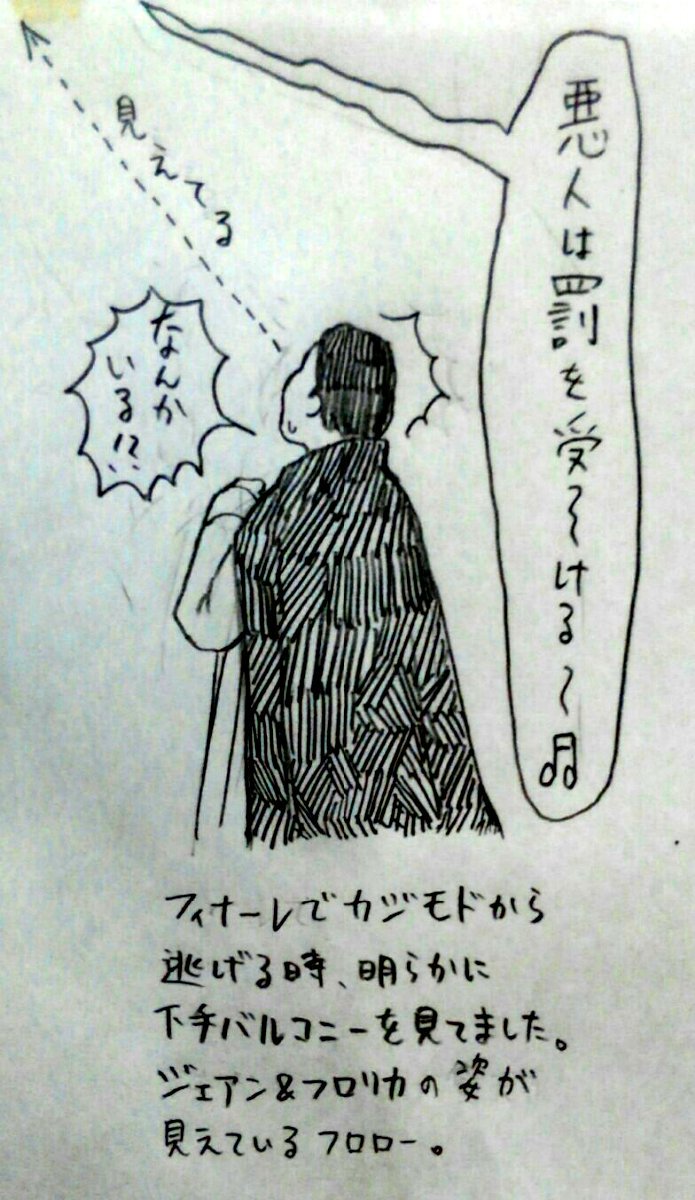 悪人は罰を受〜ける〜♫
見えてる
なんか
いる!?
フィナーレでカジモドから
逃げる時、明らかに
下手バルコニーを見てました。
ジェアン&フロリカの姿が
見えているフロロー。